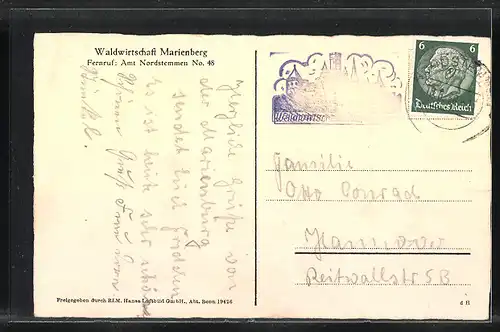 Waldwirtschaft Marienberg
Fernruf: Amt Nordstemmen No. 48
Herzliche Grüße von
der Marienburg
sendet Euch
Es ist heute sehr schön
Schönen Gruß
Waldwirtsc
6 6
Deutsches Reich
Familie
Otto Conrad
Hannover
Reitwallstr 5B
Freigegeben durch RLM. Hansa Luftbild GmbH., Abt. Bonn 19426
d H